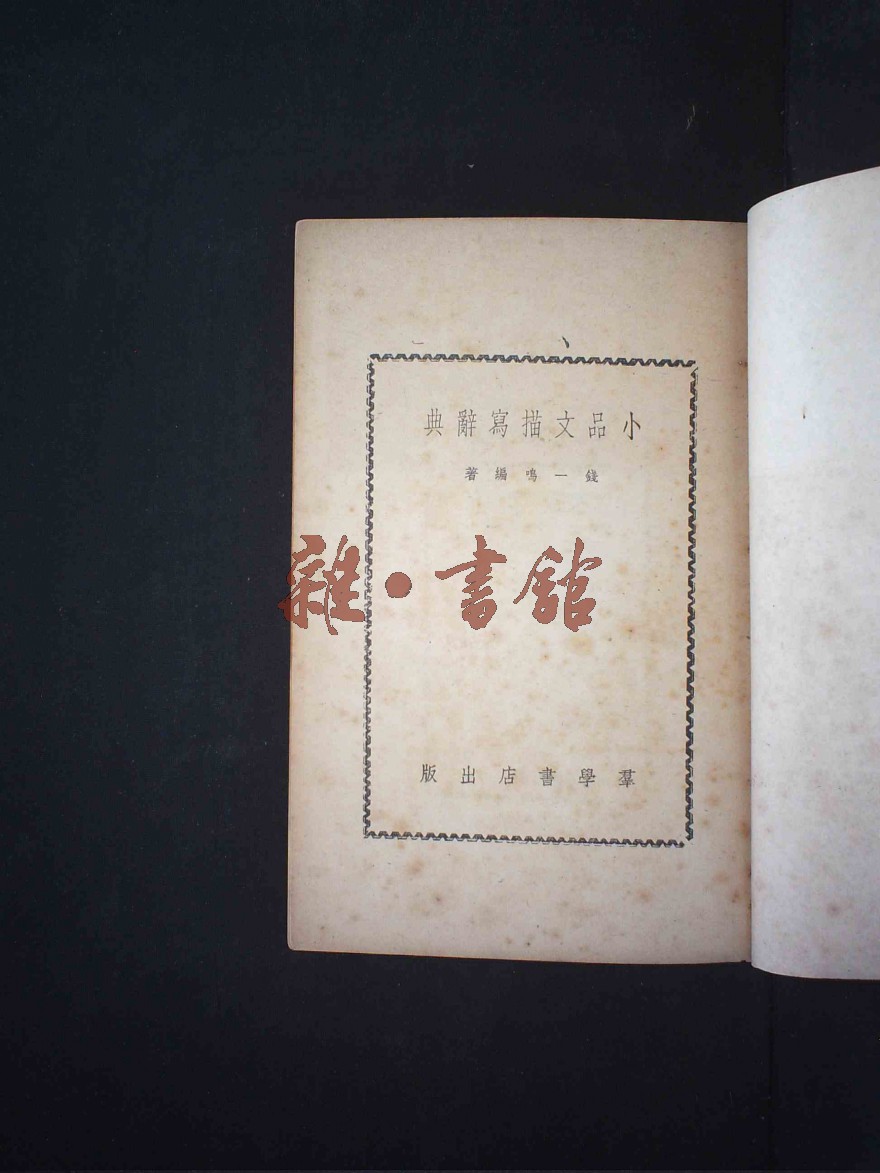 小品文描寫辭典
錢一鳴編著
雜•書館
羣學書店出版